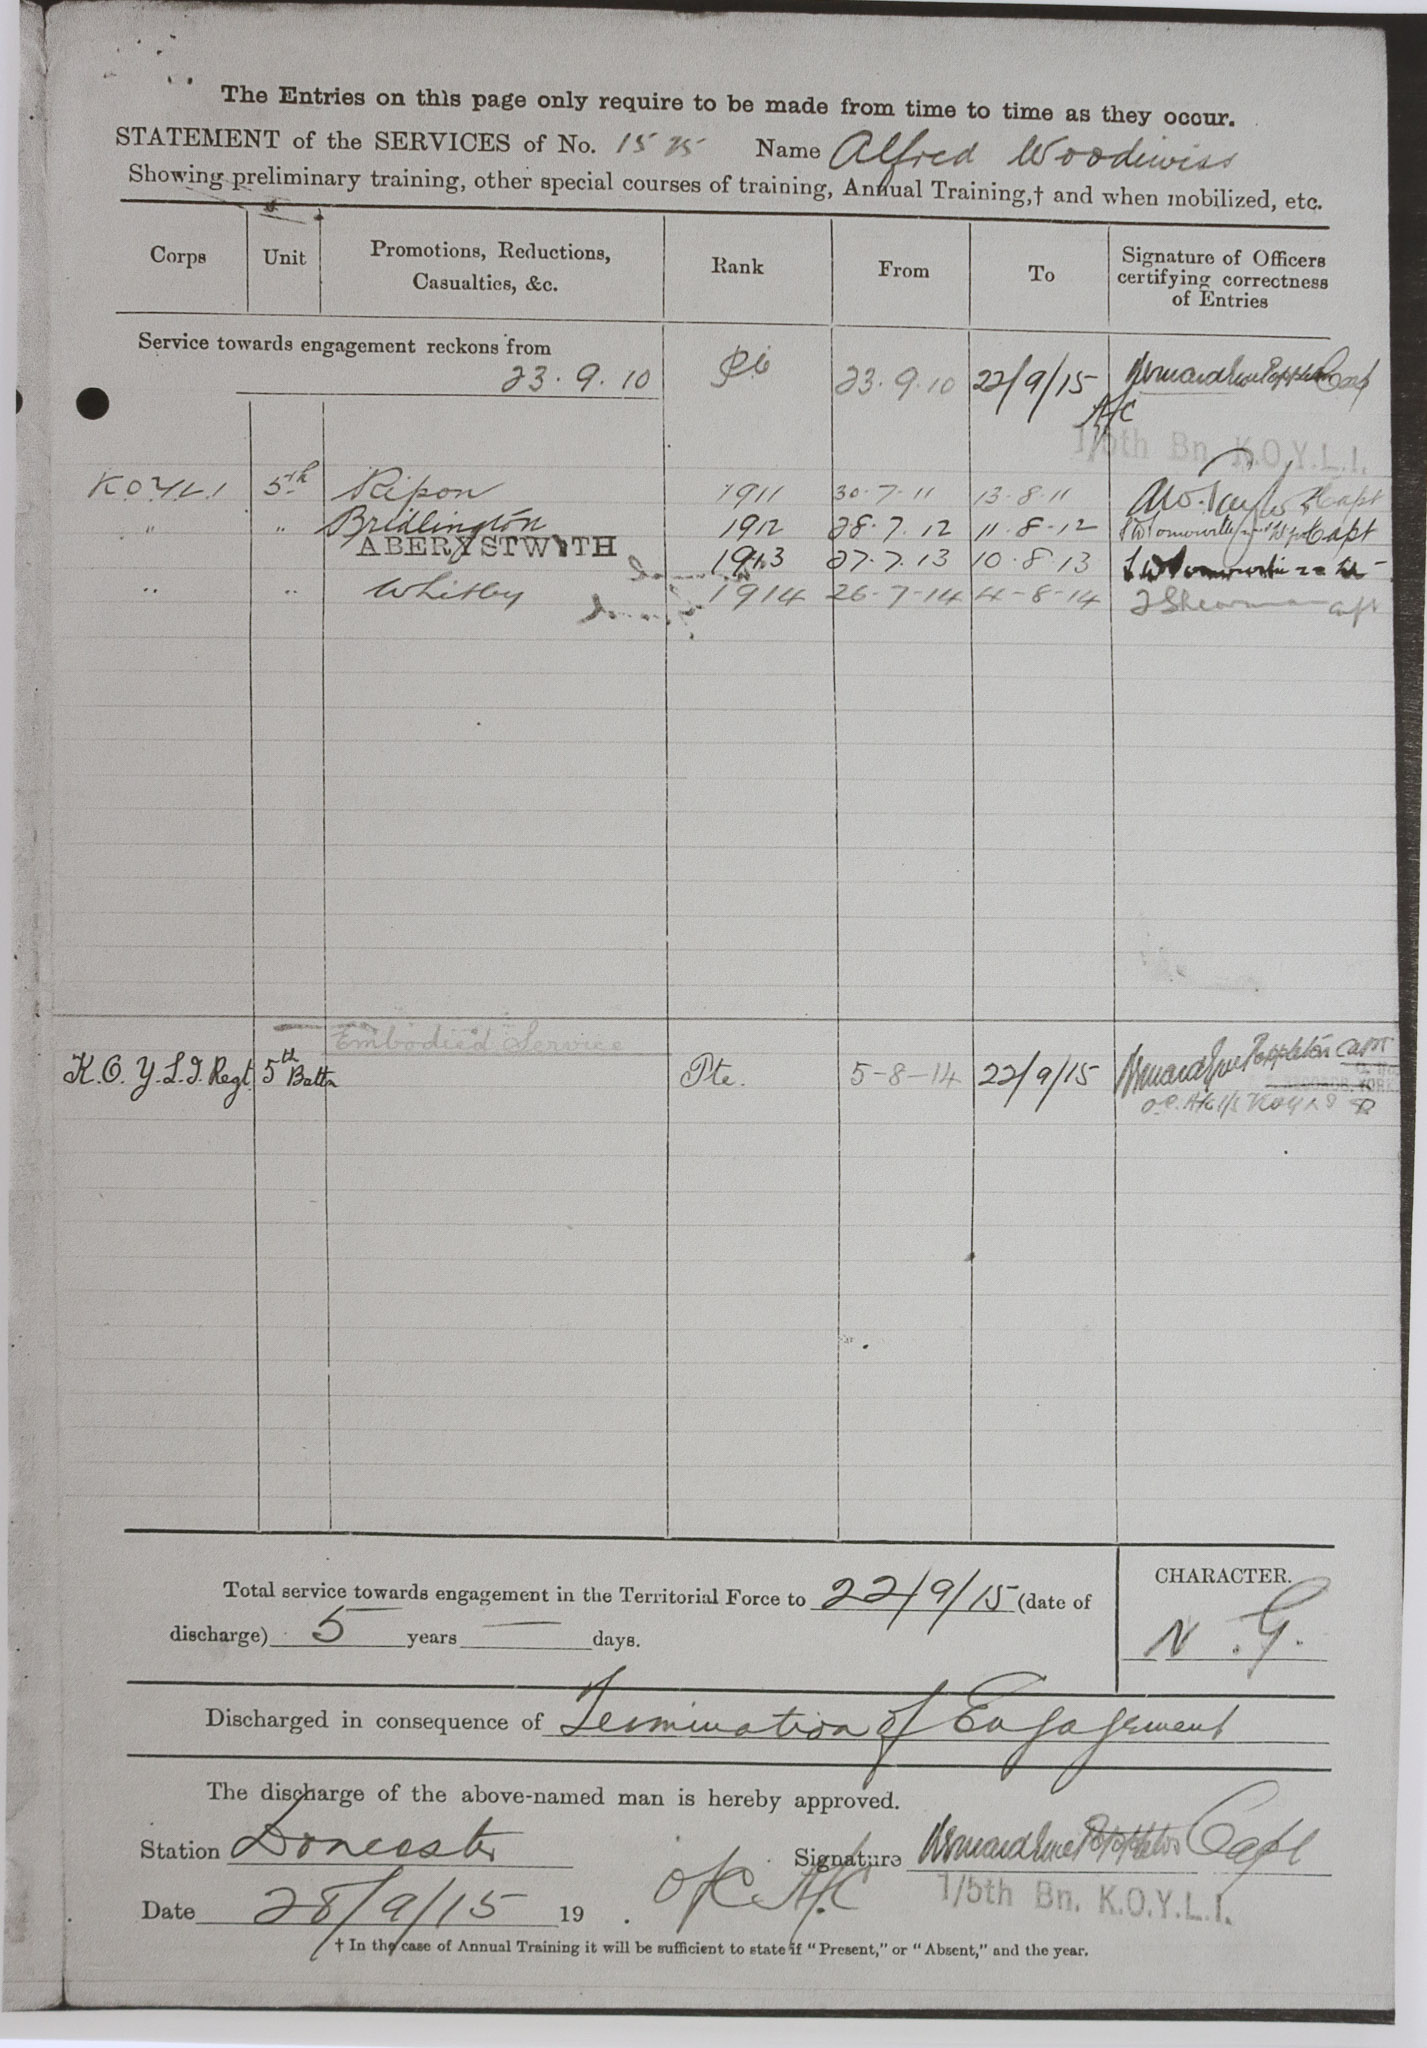 The Entries on this page only require to be made from time to time as they occur.
STATEMENT of the SERVICES of No. 1575 Name Alfred Woodiwiss
Showing preliminary training, other special courses of training, Annual Training,† and when mobilized, etc.
Corps Unit Promotions, Reductions, Casualties, &c. Rank From To Signature of Officers certifying correctness of Entries
Service towards engagement reckons from
23.9.10 Pte 23.9.10 22/9/15 Capt
A/C
1/5th Bn. K.O.Y.L.I.
KOYLI 5th Ripon 1911 30.7.11 13.8.11 Capt
" " Bridlington 1912 28.7.12 11.8.12 Capt
ABERYSTWYTH 1913 27.7.13 10.8.13
" " Whitby 1914 26-7-14 4-8-14 Capt
Embodied Service
K.O.Y.L.I. Regt. 5th Battn Pte. 5-8-14 22/9/15 Poppleton Capt
Total service towards engagement in the Territorial Force to 22/9/15 (date of
discharge) 5 years — days.
CHARACTER.
N.G.
Discharged in consequence of Termination of Engagement
The discharge of the above-named man is hereby approved.
Station Doncaster Signature Poppleton Capt
O/C A/C 1/5th Bn. K.O.Y.L.I.
Date 28/9/15 19 .
† In the case of Annual Training it will be sufficient to state if "Present," or "Absent," and the year.